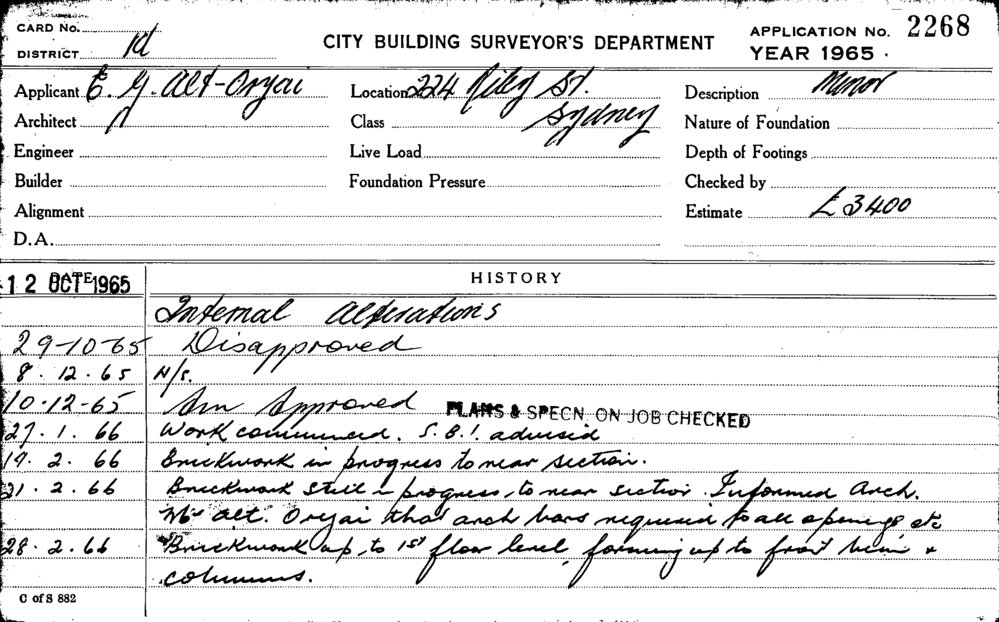 CARD No.
DISTRICT
CITY BUILDING SURVEYOR'S DEPARTMENT
APPLICATION No. 2268
YEAR 1965.
Applicant E. Y. Alt-Oryai
Location 224 Riley St. Sydney
Description Minor
Architect "
Class
Nature of Foundation
Engineer
Live Load
Depth of Footings
Builder
Foundation Pressure
Checked by
Alignment
Estimate £3400
D.A.
DATE
HISTORY
12 OCT 1965
Internal Alterations
29-10-65 Disapproved
8. 12. 65 N/S.
10-12-65 Am Approved PLANS & SPECN. ON JOB CHECKED
27. 1. 66 Work commenced. S.B.I. advised
14. 2. 66 Brickwork in progress to rear section.
21. 2. 66 Brickwork still in progress, to rear section. Informed Arch.
Mr Alt. Oryai that arch bars required to all openings etc
28. 2. 66 Brickwork up to 1st floor level, forming up to front beam &
columns.
C of S 882